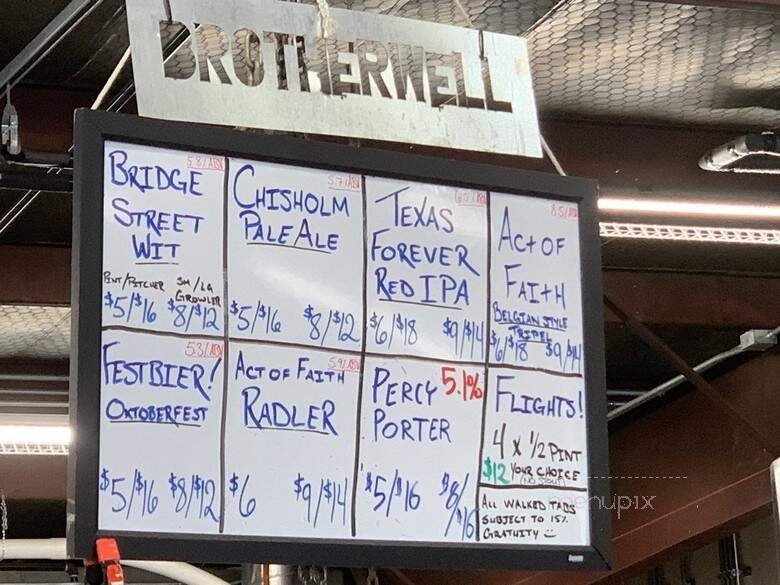 BROTHERWELL
5.8% ABV
BRIDGE
STREET
WIT
PINT/PITCHER SM/LG
GROWLER
$5/$16 $8/$12
5.7% ABV
CHISHOLM
PALE ALE
$5/$16 $8/$12
TEXAS
FOREVER
RED IPA
$6/$18 $9/$14
8.5% ABV
ACT OF
FAITH
BELGIAN STYLE
TRIPEL
$6/$18 $9/$14
5.3% ABV
FESTBIER!
OKTOBERFEST
$5/$16 $8/$12
5.9% ABV
ACT OF FAITH
RADLER
$6 $9/$14
PERCY 5.1%
PORTER
$5/$16 $8/
FLIGHTS!
4 x 1/2 PINT
$12 YOUR CHOICE
ALL WALKED TABS
SUBJECT TO 15%
GRATUITY
menupix